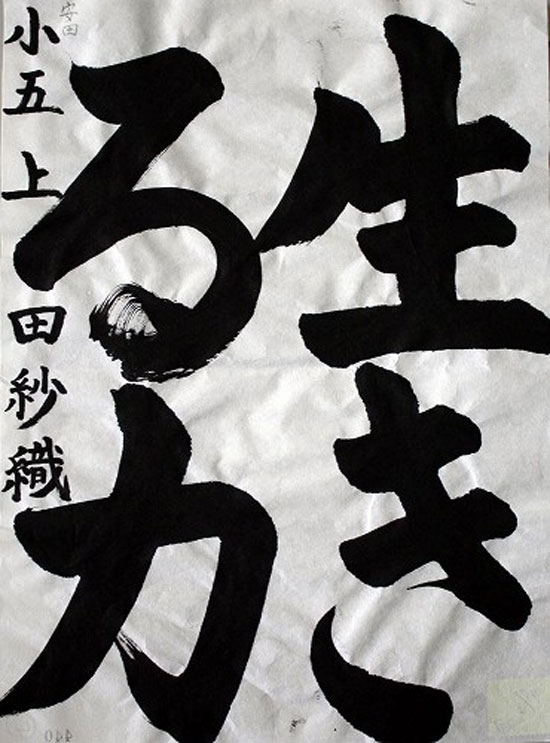 生き
る力
小五 上田紗織
安田